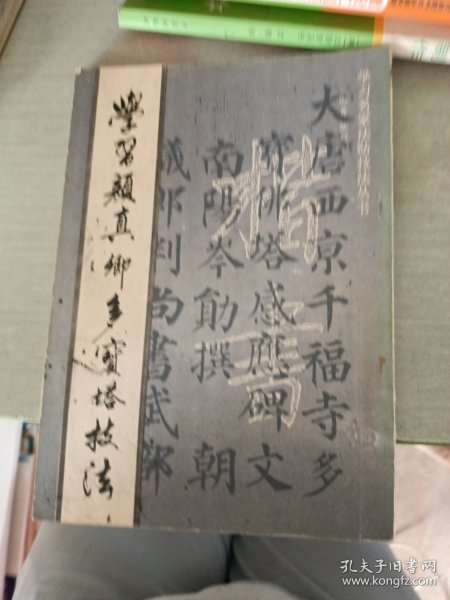 學習顔真卿多寶塔技法
大唐西京千福寺多
寶佛塔感應碑文
南陽岑勛撰 朝
議郎判尚書武部
楷書
孔夫子旧书网
www.kongfz.com